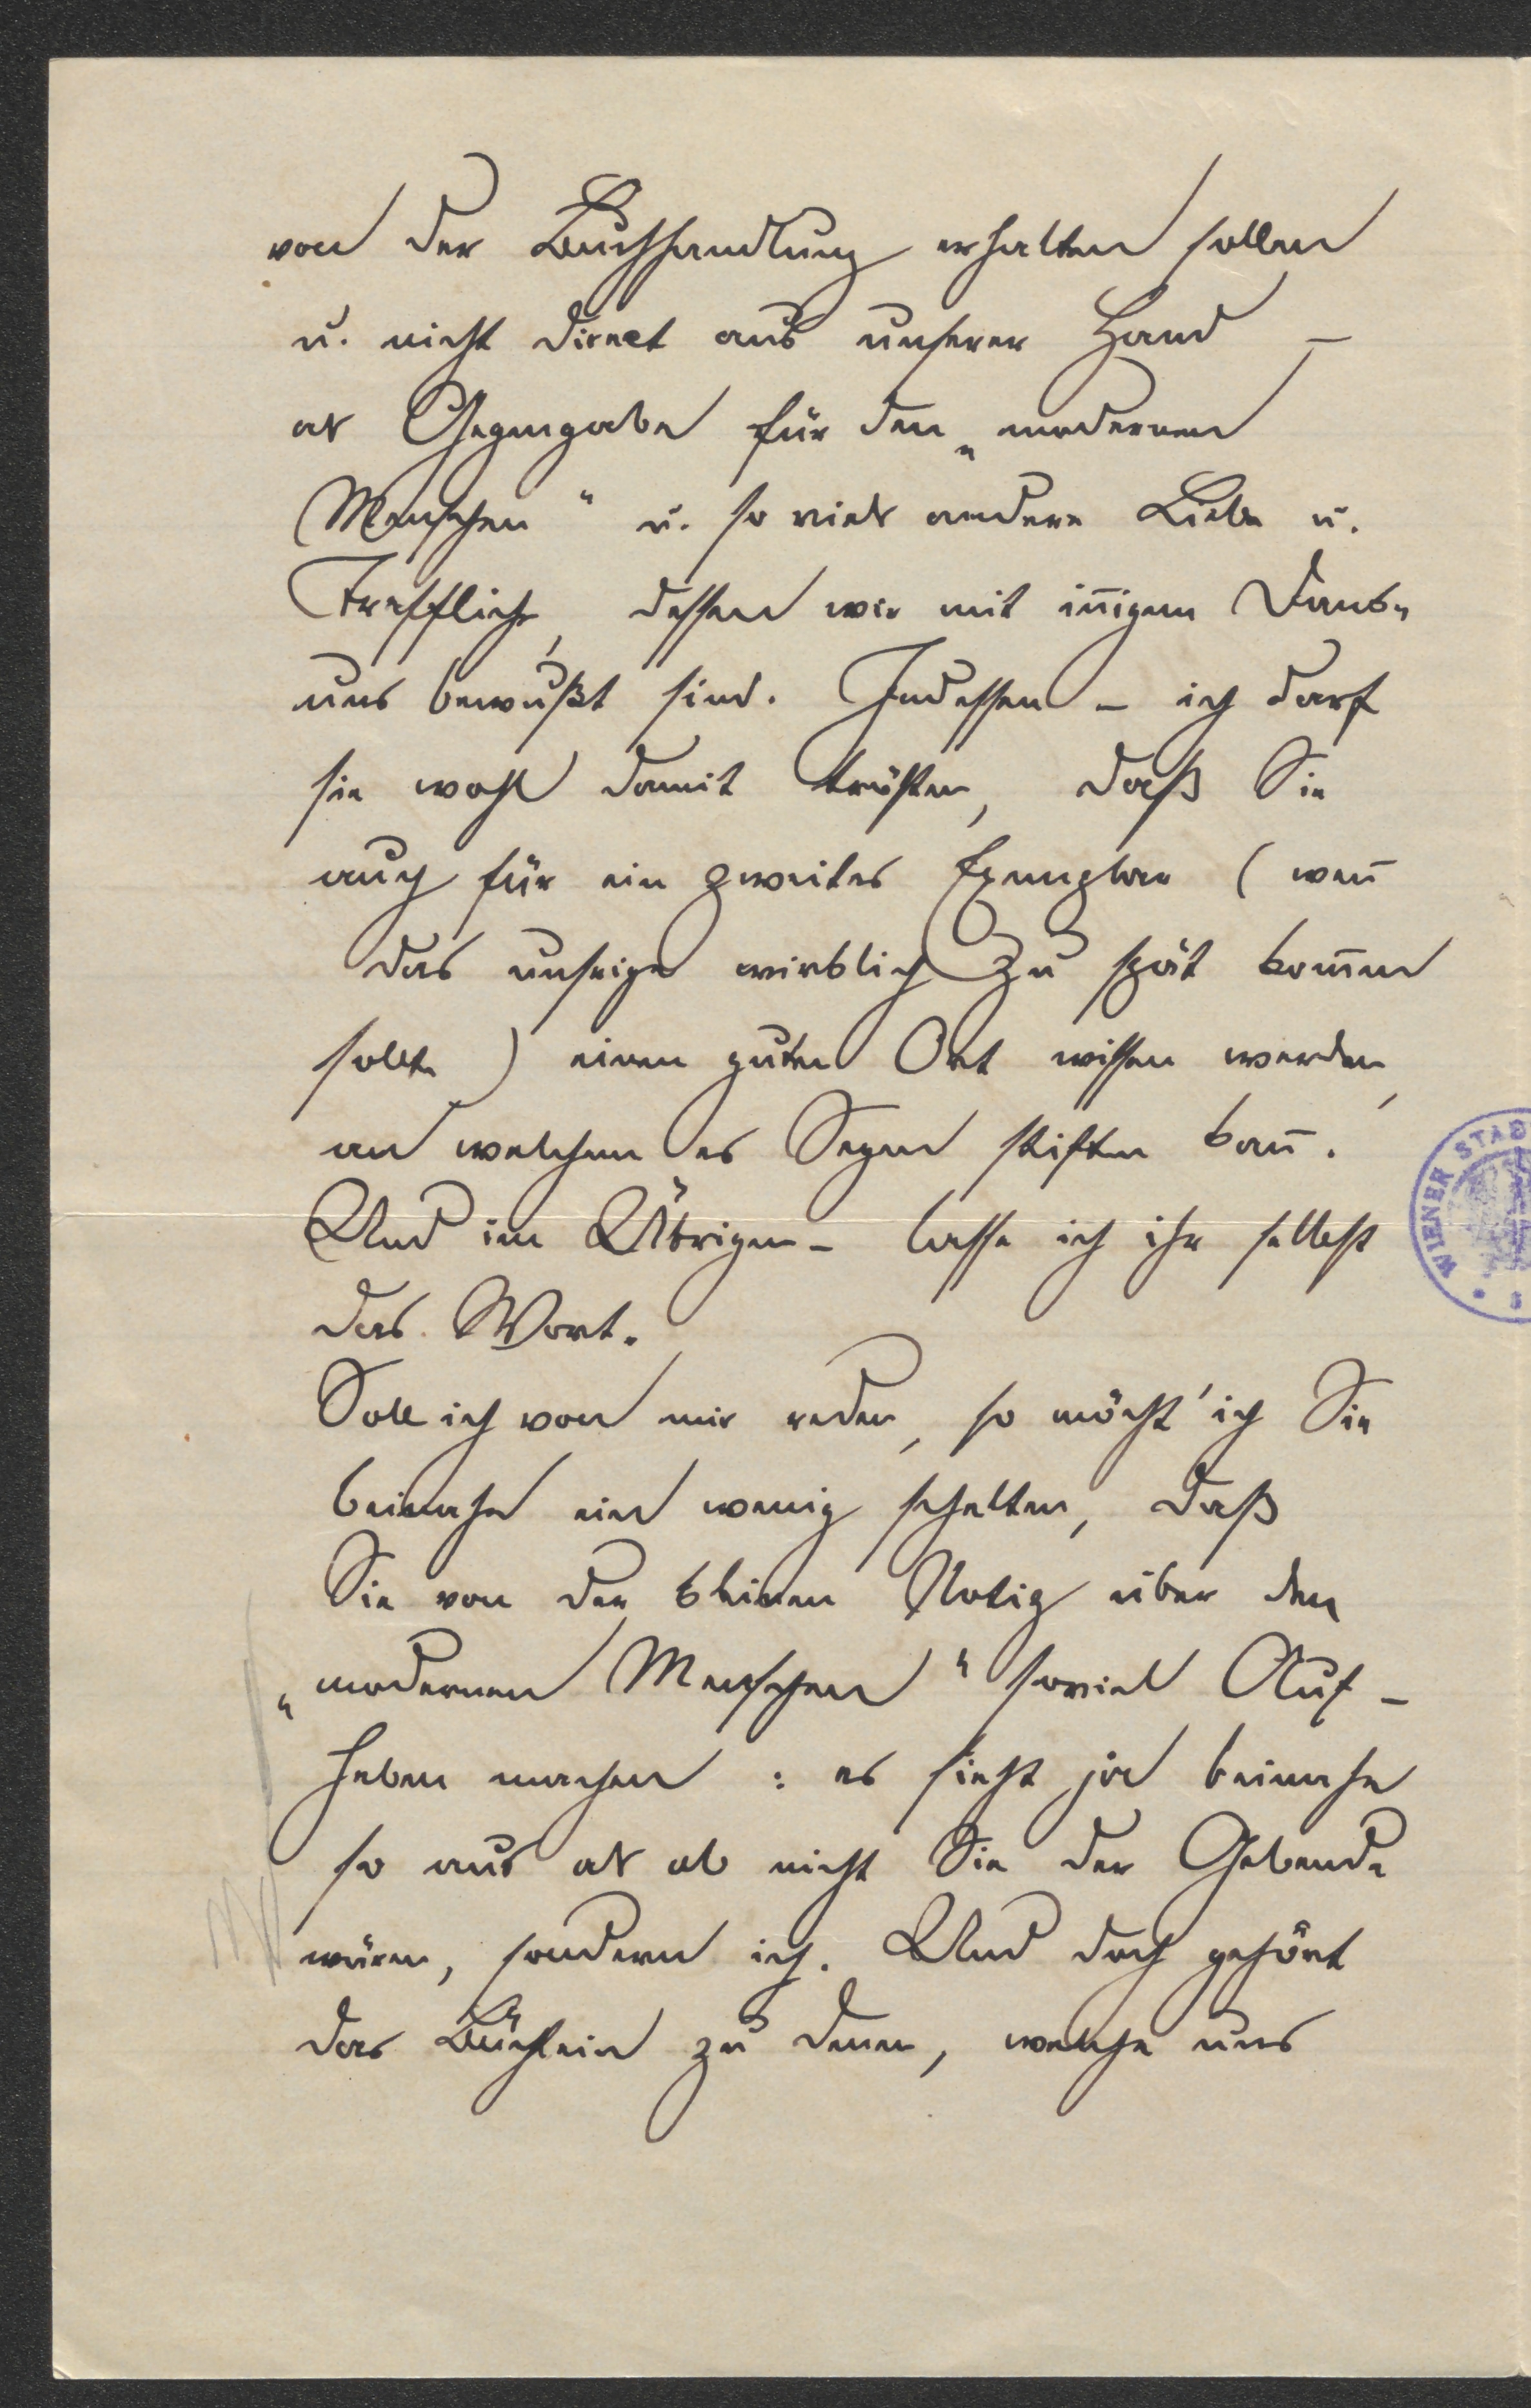 von der Buchhandlung erhalten sollen
u. nicht direct aus unserer Hand –
als Gegengabe für den „modernen
Menschen" u. so viele andere Liebe u.
Treffliche, dessen wir mit in̅igem Danke
uns bewußt sind. Indessen – ich darf
sie wohl damit trösten, daß Sie
auch für ein zweites Exemplar (wen̅
das unsrige wirklich zu spät kom̅en
sollte) einen guten Ort wissen werden,
an welchem es Segen stiften kan̅.
Und im Übrigen – lasse ich ihr selbst
das Wort.
Soll ich von mir reden, so möcht' ich Sie
beinahe ein wenig schelten, daß
Sie von der kleinen Notiz über den
„modernen Menschen" soviel Auf-
heben machen: es sieht ja beinahe
so aus als ob nicht Sie der Gebende
wären, sondern ich. Und doch gehört
das Büchlein zu denen, welche uns
WIENER STAD